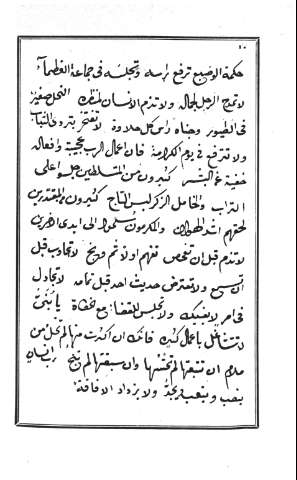 ١٠
حكمة الوضيع ترفع راسه وتجلسه في جماعة العظماء
لا تمدح الرجل لجماله ولا تذم الانسان لمنظره النحل صغير
في الطيور وجناه راس كل حلاوة لا تفتخر بتردي الثياب
ولا تترفع في يوم الكرامة فان اعمال الرب عجيبة وافعاله
خفية عن البشر كثيرون من المتسلطين جلسوا على
التراب والخامل الذكر لبس التاج كثيرون من المقتدرين
لحقهم اشد الهوان والمكرمون سُلموا الى ايدي اخرين
لا تذم قبل ان تفحص تفهم اولاً ثم وبخ لا تجاوب قبل
ان تسمع ولا تعترض حديث احد قبل تمامه لا تجادل
في امر لا يعنيك ولا تجلس للقضا مع الخطاة يا بُنيَّ
لا تتشاغل باعمال كثيرة فانك ان اكثرت منها لم تخل من
ملام ان تتبعتها لم تحشها وان سبقتها لم تنج رب انسان
ينصب ويتعب ويجدُّ ولا يزداد الا فاقة